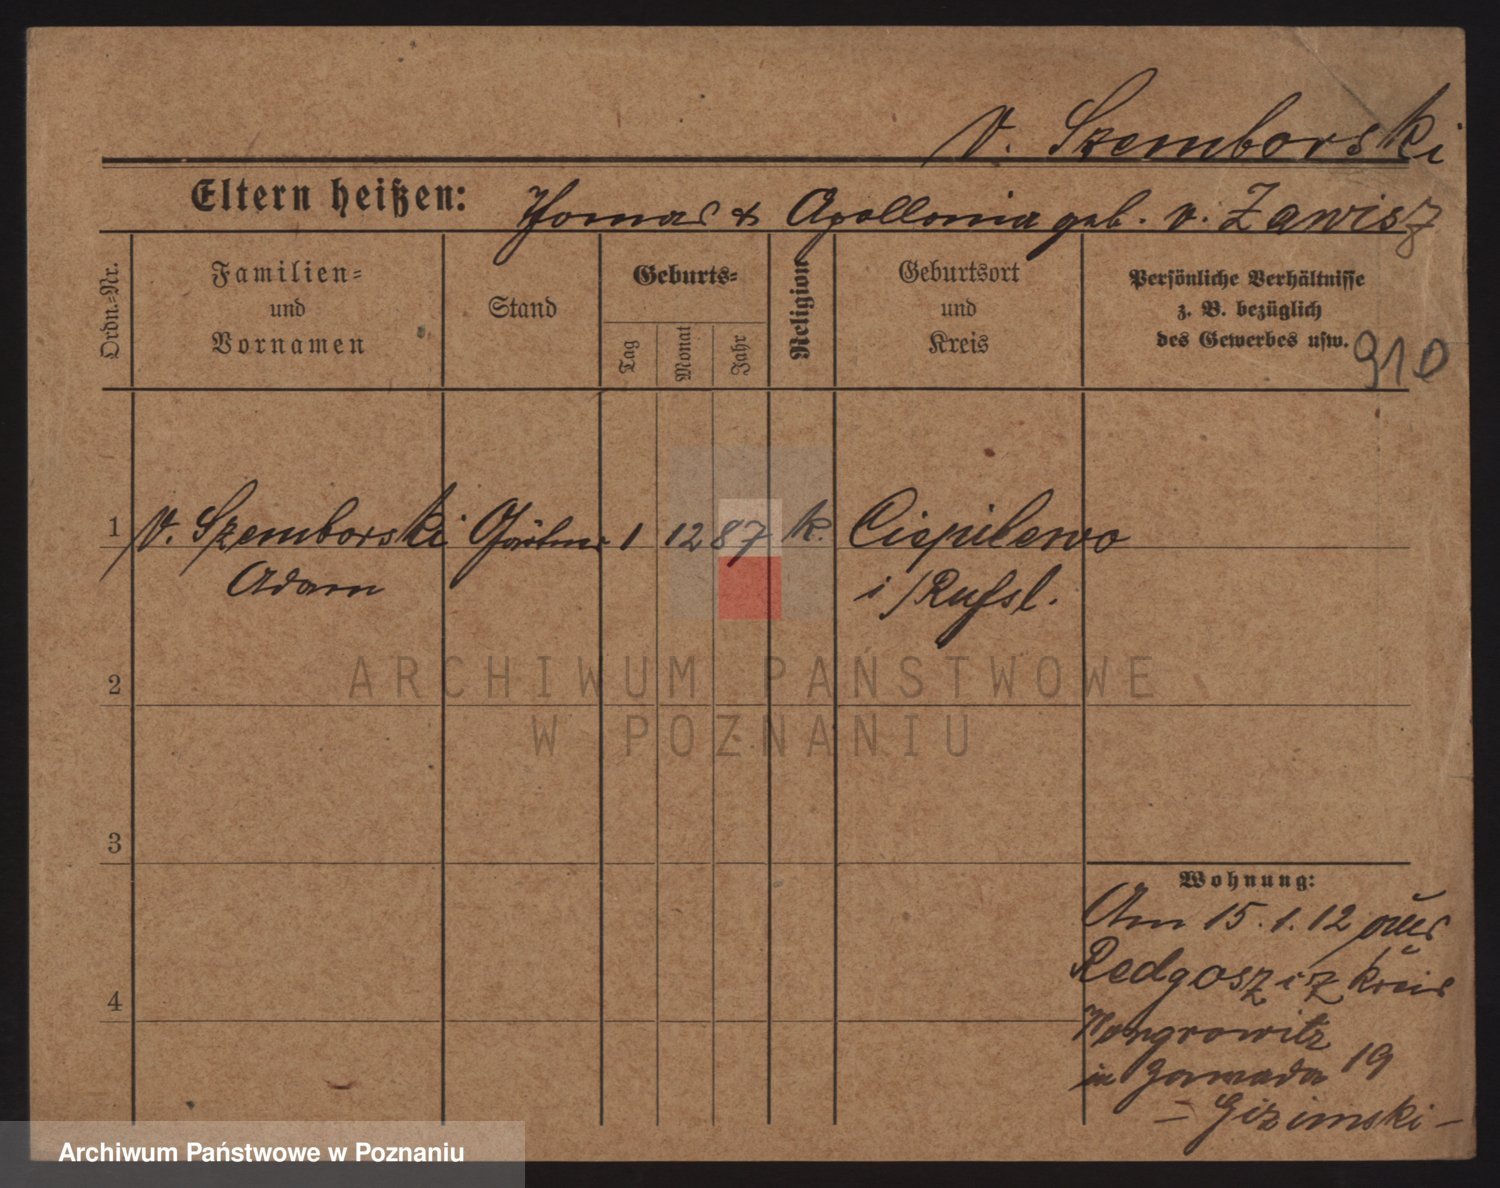 v. Szemborski
Eltern heißen: Thomas & Apollonia geb. v. Zawisz
Ordn.=Nr.
Familien=
und
Vornamen
Stand
Geburts=
Tag
Monat
Jahr
Religion
Geburtsort
und
Kreis
Persönliche Verhältnisse
z. B. bezüglich
des Gewerbes usw.
910
1 v. Szemborski Gärtner 1 12 87 k. Cispilewo
Adam i/Rußl.
2
3
4
Wohnung:
Am 15.1.12 aus
Redgoszcz Kreis
Wongrowitz
in Zawada 19
= Gizimski –
ARCHIWUM PAŃSTWOWE
W POZNANIU
Archiwum Państwowe w Poznaniu